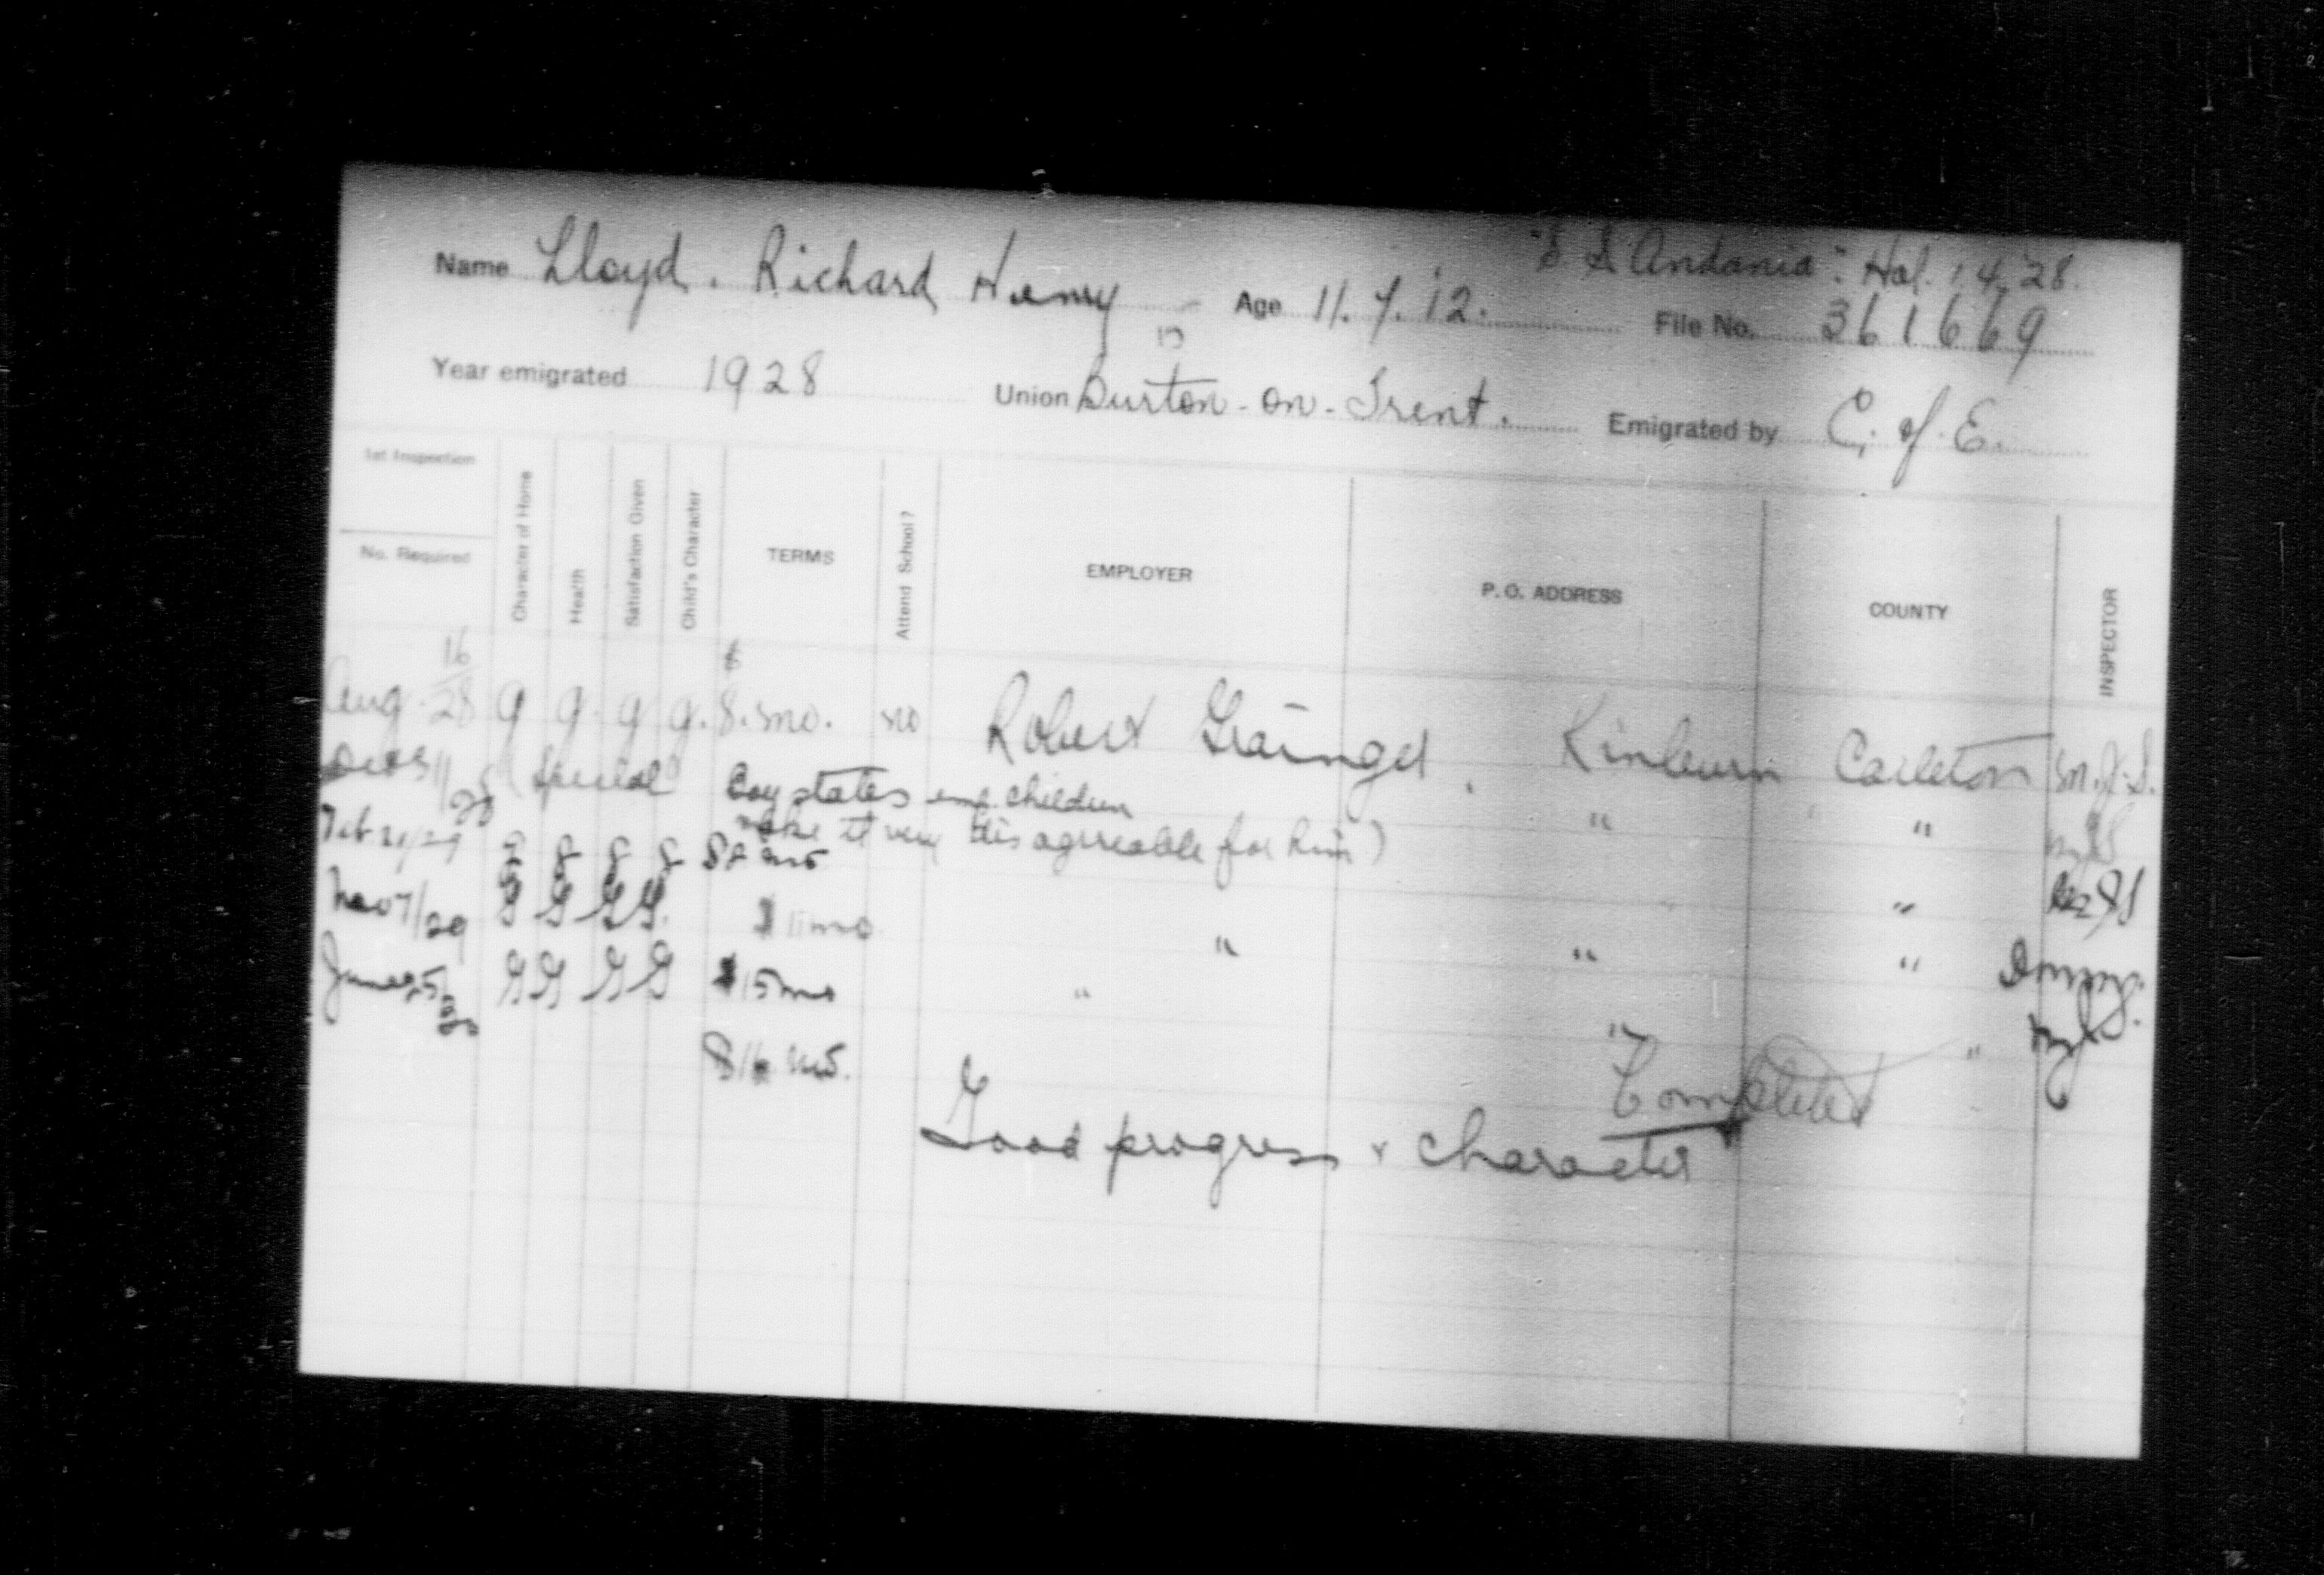 "S S Andania". Hal. 1.4.28.
Name Lloyd. Richard Henry Age 11.7.12. File No. 361669
15
Year emigrated 1928 Union Burton-on-Trent. Emigrated by C. of E.
1st Inspection
No. Required
Character of Home
Health
Satisfaction Given
Child's Character
TERMS
Attend School?
EMPLOYER
P. O. ADDRESS
COUNTY
INSPECTOR
Aug 16/28 g g. g g. $ 8. mo. no Robert Grainger. Kinburn Carleton M.J.S.
11/28 (Special Boy states emp. children " "
make it very disagreeable for him)
Feb 21/29 g g g g mo "
Nov 7/29 G G G G. $ 11 mo " " "
June 25/30 G G G G $ 15 mo " " "
$ 16 mo. Completed
Good progress & character